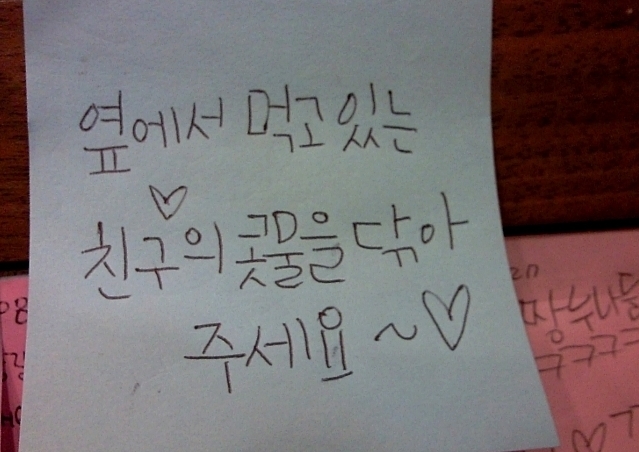 옆에서 먹고 있는
친구의 콧물을 닦아
주세요 ~♡